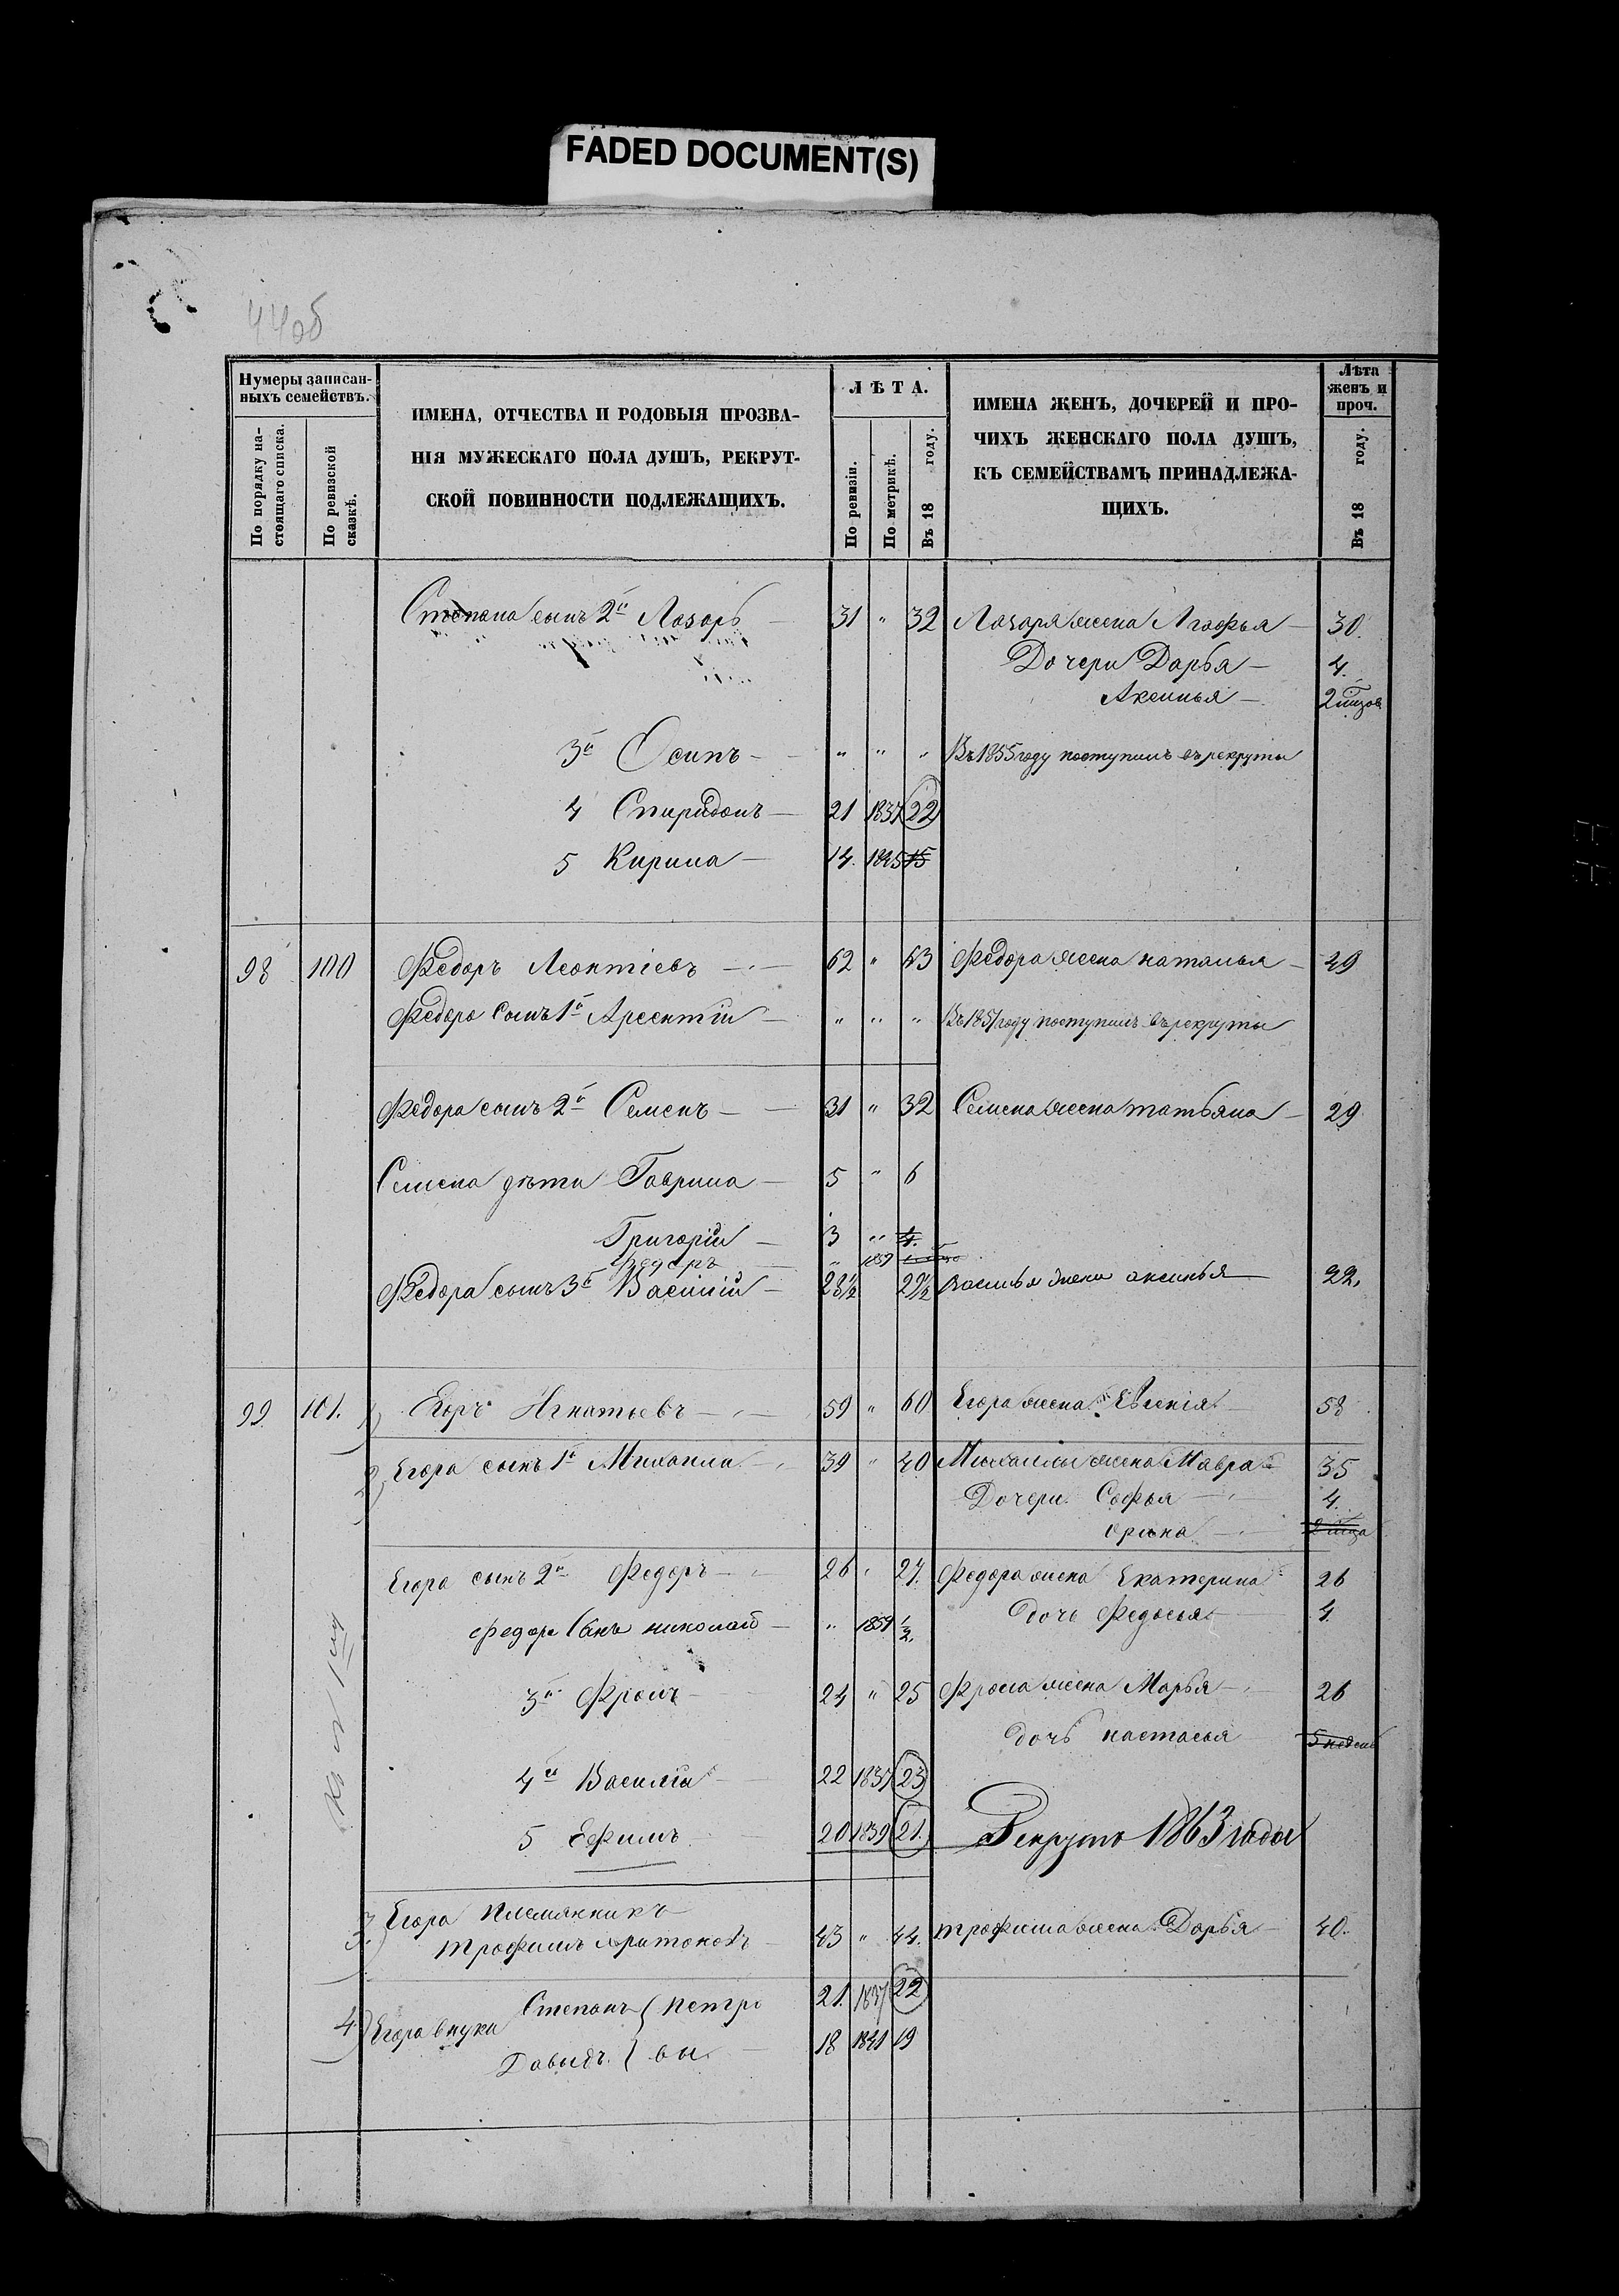 FADED DOCUMENT(S)
44об
Нумеры записан-
ныхъ семействъ.
По порядку на-
стоящаго списка.
По ревизской
сказкѣ.
ИМЕНА, ОТЧЕСТВА И РОДОВЫЯ ПРОЗВА-
НІЯ МУЖЕСКАГО ПОЛА ДУШЪ, РЕКРУТ-
СКОЙ ПОВИННОСТИ ПОДЛЕЖАЩИХЪ.
ЛѢТА.
По ревизіи.
По метрикѣ.
Въ 18 году.
ИМЕНА ЖЕНЪ, ДОЧЕРЕЙ И ПРО-
ЧИХЪ ЖЕНСКАГО ПОЛА ДУШЪ,
КЪ СЕМЕЙСТВАМЪ ПРИНАДЛЕЖА-
ЩИХЪ.
Лѣта
женъ и
проч.
Въ 18 году.
Степана сынъ 2й Лазарь — 31 " 32 Лазаря жена Агафья — 30.
Дочери Дарья — 4.
Аксинья — 2
3й Осипъ — " " " Въ 1855 году поступилъ въ рекруты
4 Спиридонъ — 21 1837 22
5 Кирила — 14. 1845 15
98 100 Федоръ Леонтіевъ — 62 " 63 Федора жена наталья — 49
Федора сынъ 1й Арсентій — " " " Въ 1851 году поступилъ въ рекруты
Федора сынъ 2й Семенъ — 31 " 32 Семена жена татьяна — 29
Семена дѣти Гаврила — 5 " 6
Григорій — 3 " 4.
Федоръ " 1859
Федора сынъ 3й Василій — 28½ 29½ Василья жена аксинья 22.
99 101. 1) Егоръ Игнатьевъ — 59 " 60 Егора жена Евгенія 58
2) Егора сынъ 1й Михаила — 39 " 40 Михаилы жена Мавра 35
Дочери Софья — 4.
орина —
Егора сынъ 2й Федоръ — 26 " 27. Федора жена Екатерина 26
Федора Сынъ николай — " 1859 ½. дочь Федосья 4
3й Фролъ 24 " 25 Фрола жена Марья — 26
дочь настасья 5 недель
4й Василій 22 1837 23
5 Ефимъ 20 1839 21. Рекрутъ 1863 года
3.) Егора племянникъ
трофимъ харитоновъ 43 " 44. трофима жена Дарья — 40.
4) Егора внуки Степанъ { петро 21. 1837 22
Давыдъ. } вы. 18 1841 19